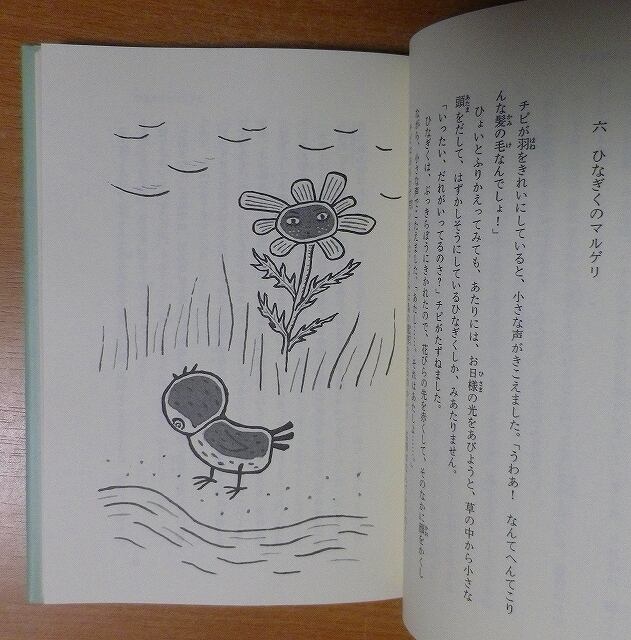 六　ひなぎくのマルゲリ
チピが羽をきれいにしていると、小さな声がきこえました。「うわあ！　なんてへんてこり
んな髪の毛なんでしょ！」
ひょいとふりかえってみても、あたりには、お日様の光をあびようと、草の中から小さな
頭をだして、はずかしそうにしているひなぎくしか、みあたりません。
「いったい、だれがいってるのさ？」チピがたずねました。
ひなぎくは、ぶっきらぼうにきかれたので、花びらの先を赤くして、そのなかに顔をかくし
ながら、小さな声でこたえました。「あたし……、それはあたしよ……。